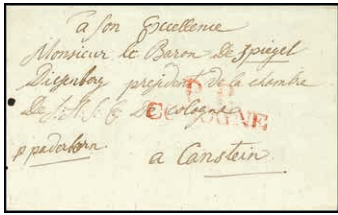 a son Excellence
Monsieur le Baron De Spiegel
Diesenberg president de la chambre
De S. A. S. E. De Cologne
P. P.
COLOGNE
p paderborn
a Canstein.